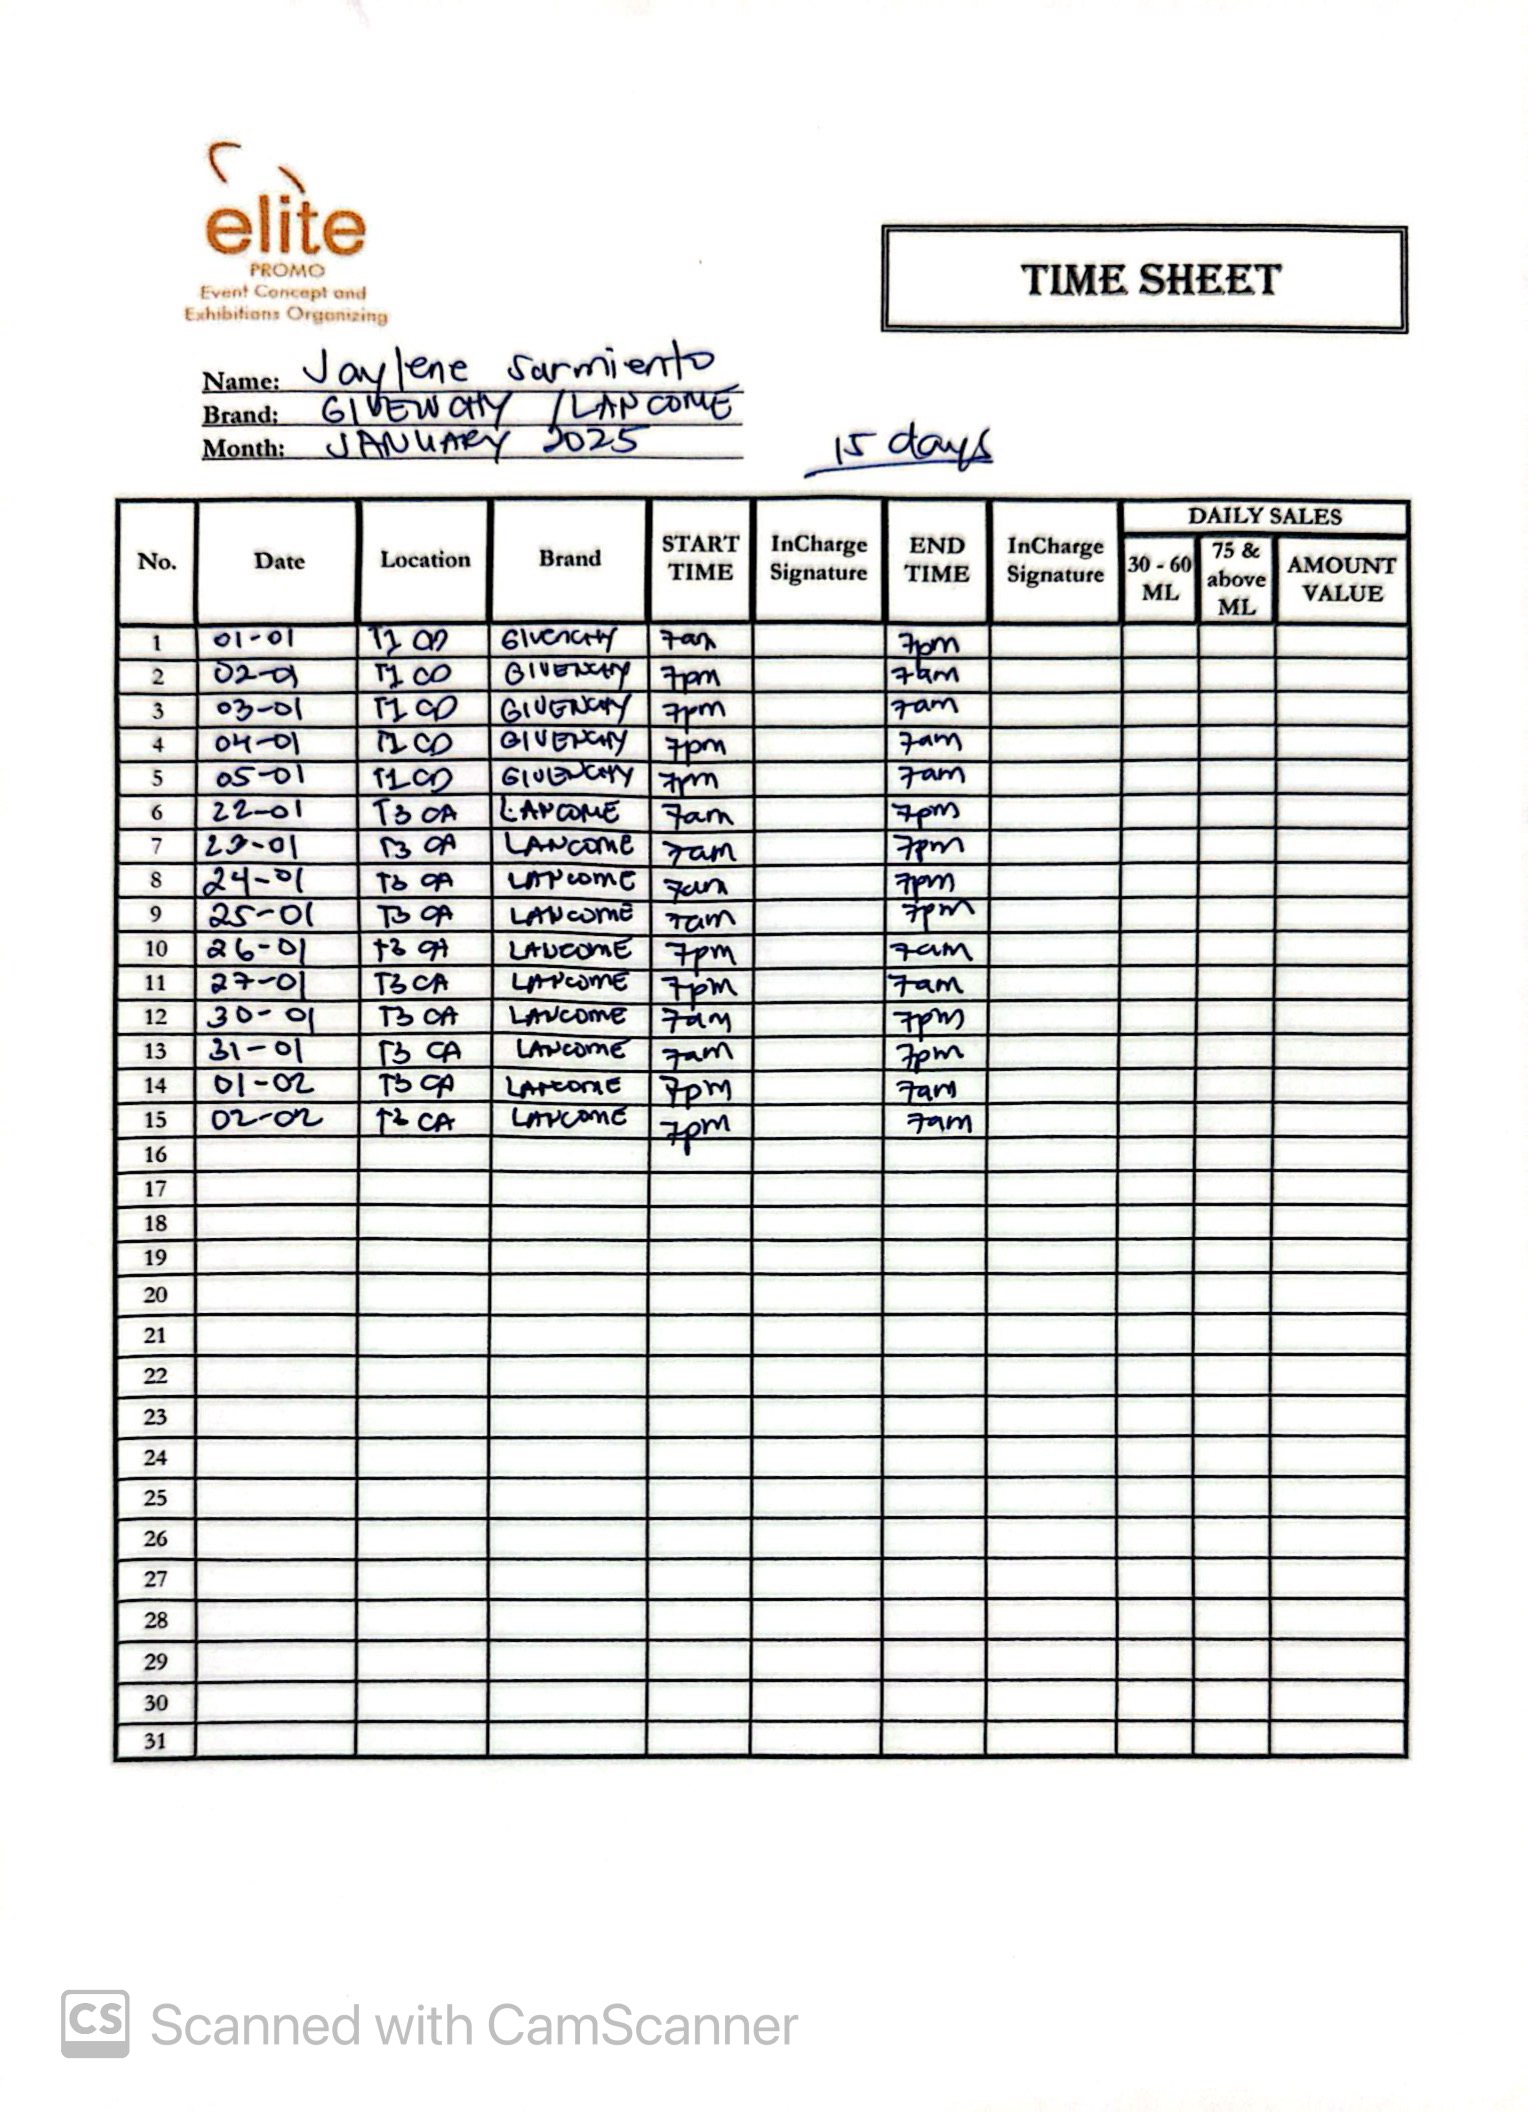 elite
PROMO
Event Concept and
Exhibitions Organizing
TIME SHEET
Name: Jaylene Sarmiento
Brand: GIVENCHY / LANCOME
Month: JANUARY 2025
15 days
No. Date Location Brand START TIME InCharge Signature END TIME InCharge Signature DAILY SALES
30 - 60 ML 75 & above ML AMOUNT VALUE
1 01-01 T1 CD GIVENCHY 7am 7pm
2 02-01 T1 CD GIVENCHY 7pm 7am
3 03-01 T1 CD GIVENCHY 7pm 7am
4 04-01 T1 CD GIVENCHY 7pm 7am
5 05-01 T1 CD GIVENCHY 7pm 7am
6 22-01 T3 CA LANCOME 7am 7pm
7 23-01 T3 CA LANCOME 7am 7pm
8 24-01 T3 CA LANCOME 7am 7pm
9 25-01 T3 CA LANCOME 7am 7pm
10 26-01 T3 CA LANCOME 7pm 7am
11 27-01 T3 CA LANCOME 7pm 7am
12 30-01 T3 CA LANCOME 7am 7pm
13 31-01 T3 CA LANCOME 7am 7pm
14 01-02 T3 CA LANCOME 7pm 7am
15 02-02 T3 CA LANCOME 7pm 7am
16
17
18
19
20
21
22
23
24
25
26
27
28
29
30
31
CS Scanned with CamScanner